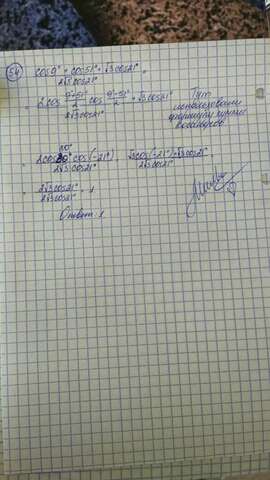 54 cos9° + cos51° + √3cos21° =
2√3cos21°
= 2cos (9°+51°)/2 cos (9°-51°)/2 + √3cos21°
2√3cos21°
Тут
использование
формулы суммы
косинусов
2cos30° cos(-21°) √3cos(-21°)+√3cos21°
2√3cos21° 2√3cos21°
= 2√3cos21° = 1
2√3cos21°
Ответ: 1